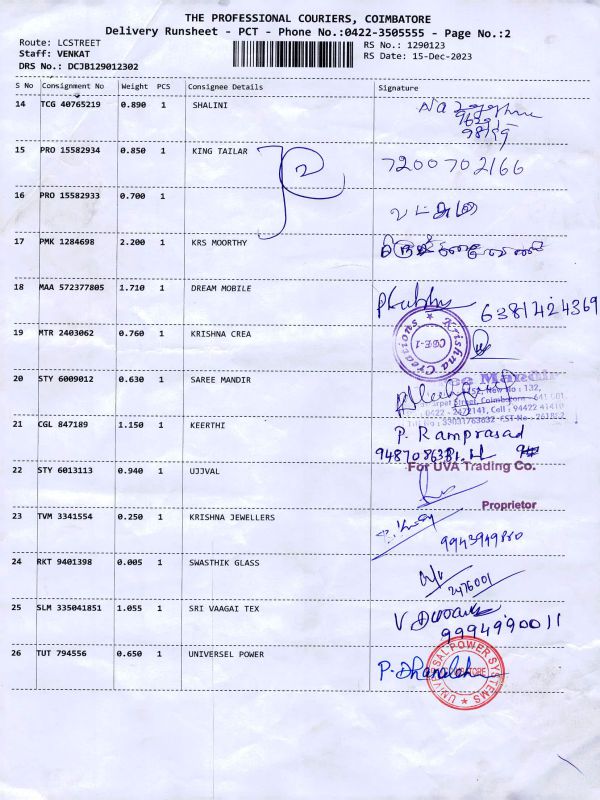 THE PROFESSIONAL COURIERS, COIMBATORE
Delivery Runsheet - PCT - Phone No.:0422-3505555 - Page No.:2
Route: LCSTREET
RS No.: 1290123
Staff: VENKAT
RS Date: 15-Dec-2023
DRS No.: DCJB129012302
S No Consignment No Weight PCS Consignee Details Signature
14 TCG 40765219 0.890 1 SHALINI
15 PRO 15582934 0.850 1 KING TAILAR 7200702166
16 PRO 15582933 0.700 1
17 PMK 1284698 2.200 1 KRS MOORTHY
18 MAA 572377805 1.710 1 DREAM MOBILE
6381424369
19 MTR 2403062 0.760 1 KRISHNA CREA
Krishna Creations
CBE-1
20 STY 6009012 0.630 1 SAREE MANDIR
21 CGL 847189 1.150 1 KEERTHI
P. Ramprasad
22 STY 6013113 0.940 1 UJJVAL
For UVA Trading Co.
Proprietor
23 TVM 3341554 0.250 1 KRISHNA JEWELLERS
24 RKT 9401398 0.005 1 SWASTHIK GLASS
2476001
25 SLM 335041851 1.055 1 SRI VAAGAI TEX
9994990011
26 TUT 794556 0.650 1 UNIVERSEL POWER
UNIVERSAL POWER SYSTEMS